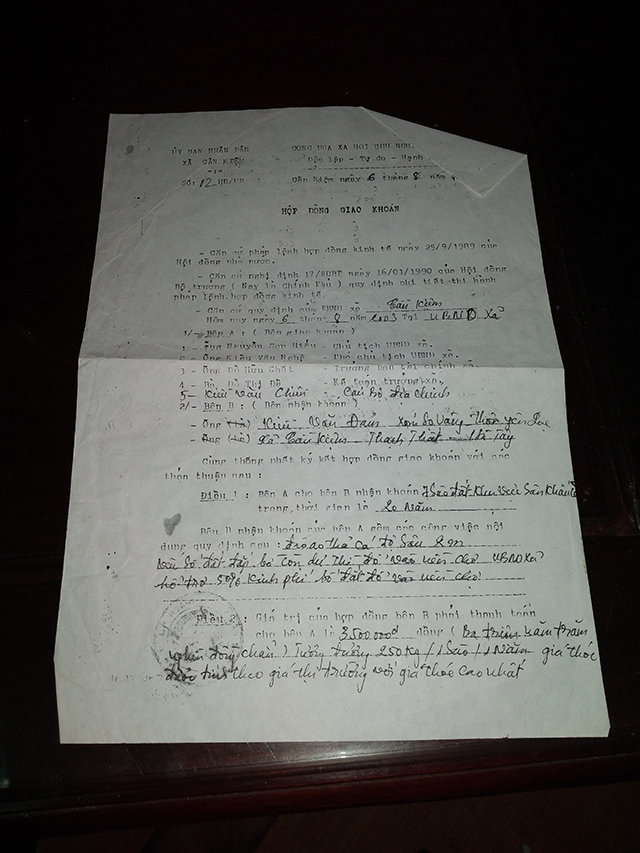 ỦY BAN NHÂN DÂN CỘNG HÒA XÃ HỘI CHỦ NGH
XÃ CẦN KIỆM Độc lập - Tự do - Hạnh
Số: 12 HĐ/UB Cần Kiệm ngày 6 tháng 8 năm
HỢP ĐỒNG GIAO KHOÁN
- Căn cứ pháp lệnh hợp đồng kinh tế ngày 25/9/1989 của
Hội đồng nhà nước.
- Căn cứ nghị định 17/HĐBT ngày 16/01/1990 của Hội đồng
Bộ trưởng ( Nay là Chính Phủ ) quy định chi tiết thi hành
pháp lệnh hợp đồng kinh tế.
- Căn cứ quy định của UBND xã Cần Kiệm
Hôm nay ngày 6 tháng 8 năm 2003 Tại UBND Xã
1/- Bên A : ( Bên giao khoán )
1 - Ông Nguyễn Sơn Hiếu - Chủ tịch UBND xã.
2 - Ông Kiều Văn Nghệ - Phó chủ tịch UBND xã.
3 - Ông Đỗ Hữu Chất - Trưởng ban tài chính xã.
4 - Bà Đỗ Thị Đô - Kế toán trưởng xã.
5- Kiều Văn Chiến - Cán bộ địa chính
2/- Bên B : ( Bên nhận khoán )
- Ông (bà) Kiều Văn Đản Xóm Thôn Yên Lạc
- Ông (bà) Xã Cần Kiệm Thạch Thất Hà Tây
Cùng thống nhất ký kết hợp đồng giao khoán với các
thỏa thuận sau :
Điều 1 : Bên A cho bên B nhận khoán Sào đất Khu vực Sân
trong thời gian là 20 Năm
Bên B nhận khoán của bên A gồm các công việc nội
dung quy định sau : Đào ao thả cá độ sâu 2m
số đất đắp bờ còn dư thì đổ vào nền chợ UBND Xã
hỗ trợ 50% kinh phí bổ đất đổ vào nền chợ
Điều 2 : Giá trị của hợp đồng bên B phải thanh toán
cho bên A là 3500.000đ đồng ( Ba triệu năm trăm
nghìn đồng chẵn ) Tương đương 250Kg / 1 Sào / 1 Năm giá thóc
được tính theo giá thị trường với giá thóc cao nhất